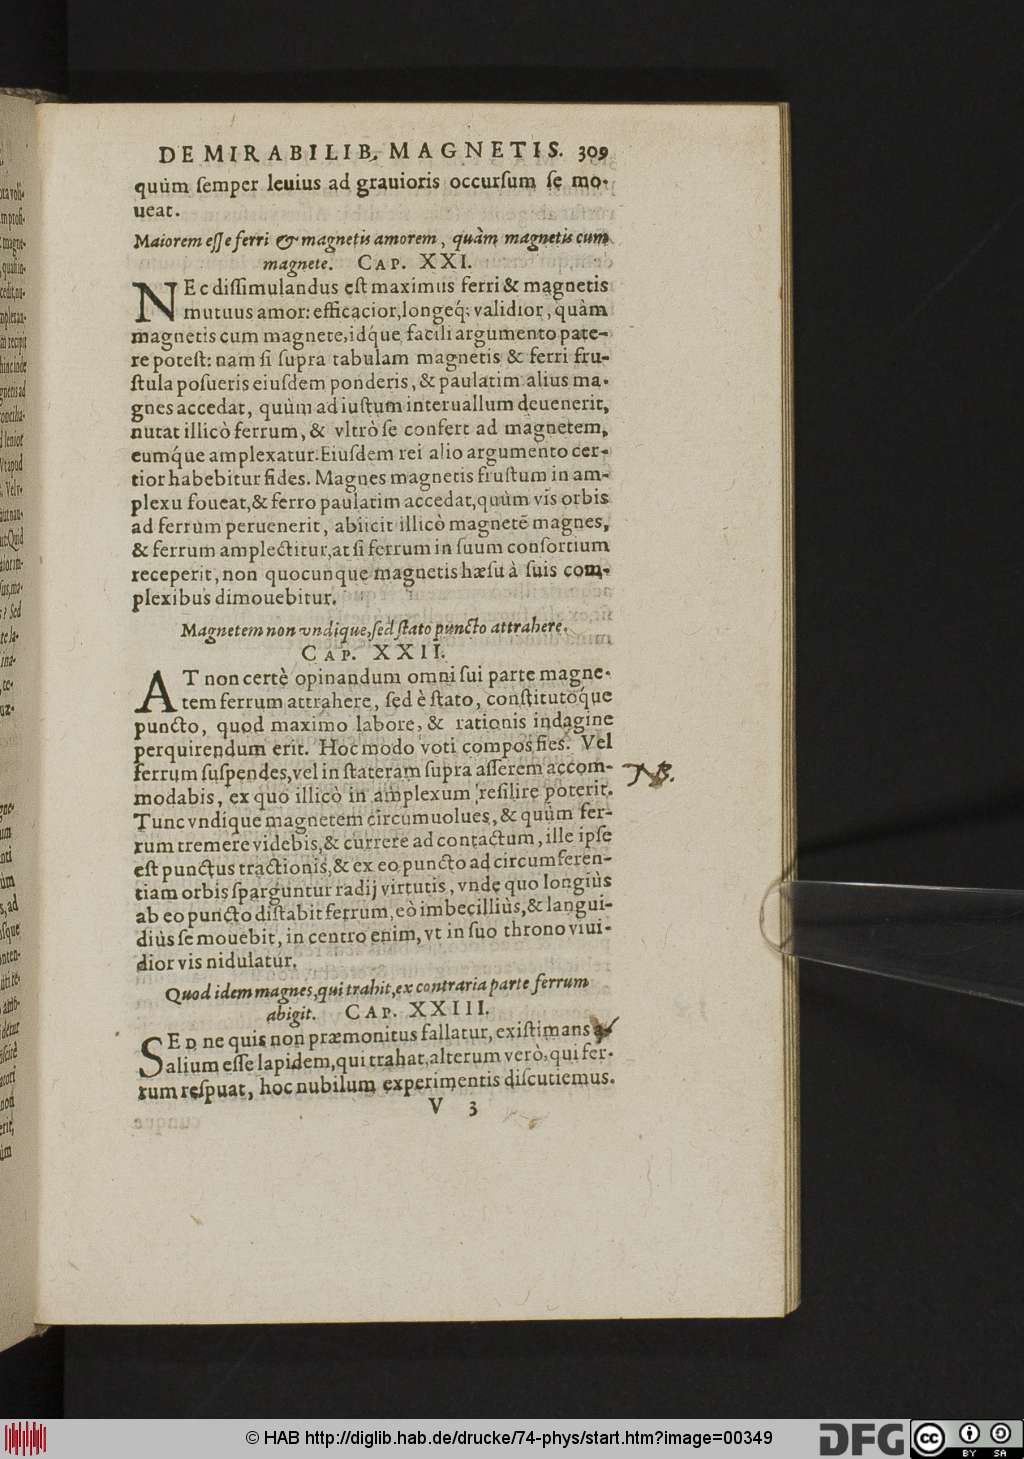 DE MIRABILIB. MAGNETIS. 309
quùm ſemper leuius ad grauioris occurſum ſe mo-
ueat.
Maiorem eſſe ferri & magnetis amorem, quàm magnetis cum
magnete. CAP. XXI.
NEc diſſimulandus eſt maximus ferri & magnetis
mutuus amor: efficacior, longeq́; validior, quàm
magnetis cum magnete, idq́ue facili argumento pate-
re poteſt: nam ſi ſupra tabulam magnetis & ferri fru-
ſtula poſueris eiuſdem ponderis, & paulatim alius ma-
gnes accedat, quùm ad iuſtum interuallum deuenerit,
nutat illicò ferrum, & vltrò ſe confert ad magnetem,
eumq́ue amplexatur. Eiuſdem rei alio argumento cer-
tior habebitur fides. Magnes magnetis fruſtum in am-
plexu foueat, & ferro paulatim accedat, quùm vis orbis
ad ferrum peruenerit, abiicit illicò magnetē magnes,
& ferrum amplectitur, at ſi ferrum in ſuum conſortium
receperit, non quocunque magnetis hæſu à ſuis com-
plexibus dimouebitur.
Magnetem non vndique, ſed ſtato puncto attrahere.
CAP. XXII.
AT non certè opinandum omni ſui parte magne-
tem ferrum attrahere, ſed è ſtato, conſtitutoq́ue
puncto, quod maximo labore, & rationis indagine
perquirendum erit. Hoc modo voti compos fies. Vel
ferrum ſuſpendes, vel in ſtateram ſupra aſſerem accom-
modabis, ex quo illicò in amplexum reſilire poterit.
Tunc vndique magnetem circumuolues, & quùm fer-
rum tremere videbis, & currere ad contactum, ille ipſe
eſt punctus tractionis, & ex eo puncto ad circumferen-
tiam orbis ſparguntur radij virtutis, vnde quo longiùs
ab eo puncto diſtabit ferrum, eò imbecilliùs, & langui-
diùs ſe mouebit, in centro enim, vt in ſuo throno viui-
dior vis nidulatur.
NB.
Quod idem magnes, qui trahit, ex contraria parte ferrum
abigit. CAP. XXIII.
SED ne quis non præmonitus fallatur, exiſtimans
alium eſſe lapidem, qui trahat, alterum verò, qui fer-
rum reſpuat, hoc nubilum experimentis diſcutiemus.
V 3
© HAB http://diglib.hab.de/drucke/74-phys/start.htm?image=00349
DFG
cc
BY SA